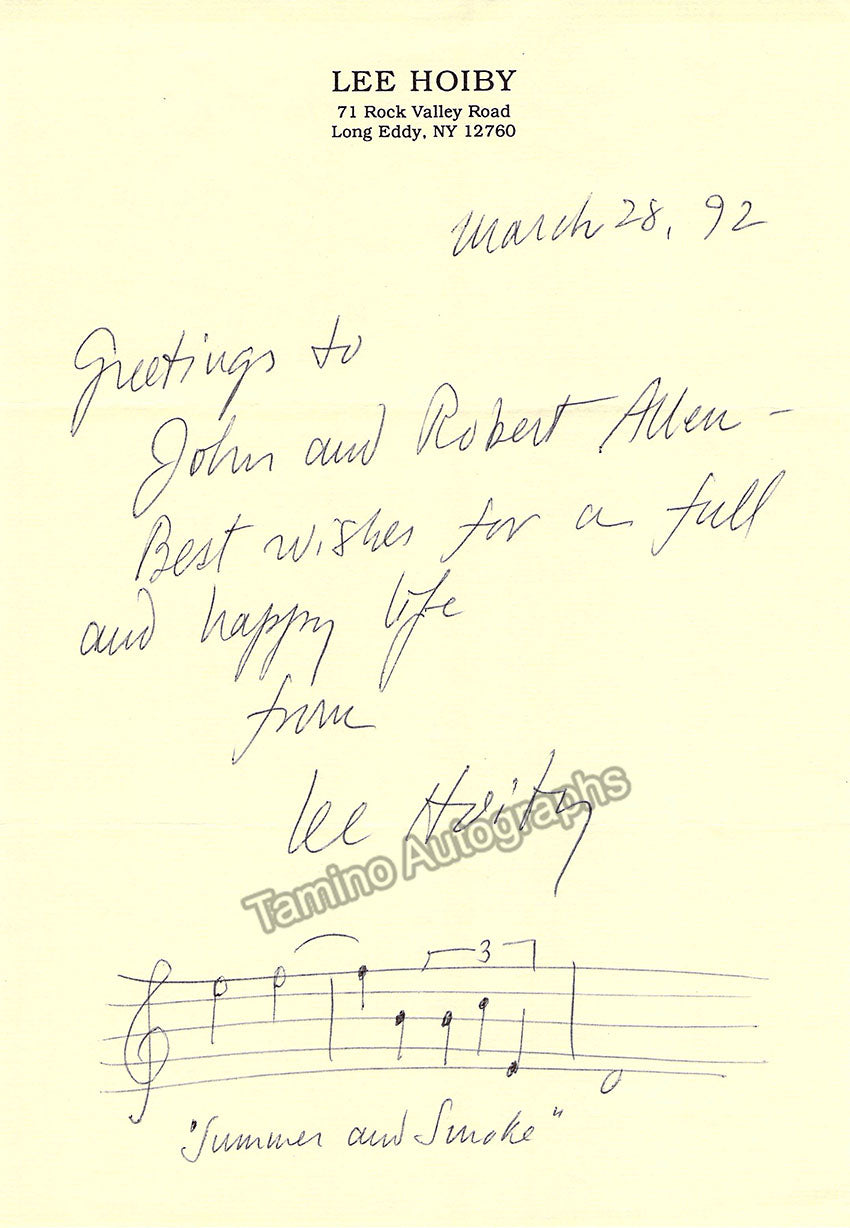 LEE HOIBY
71 Rock Valley Road
Long Eddy, NY 12760
March 28, 92
Greetings to
John and Robert Allen -
Best wishes for a full
and happy life
from
Lee Hoiby
Tamino Autographs
3
"Summer and Smoke"